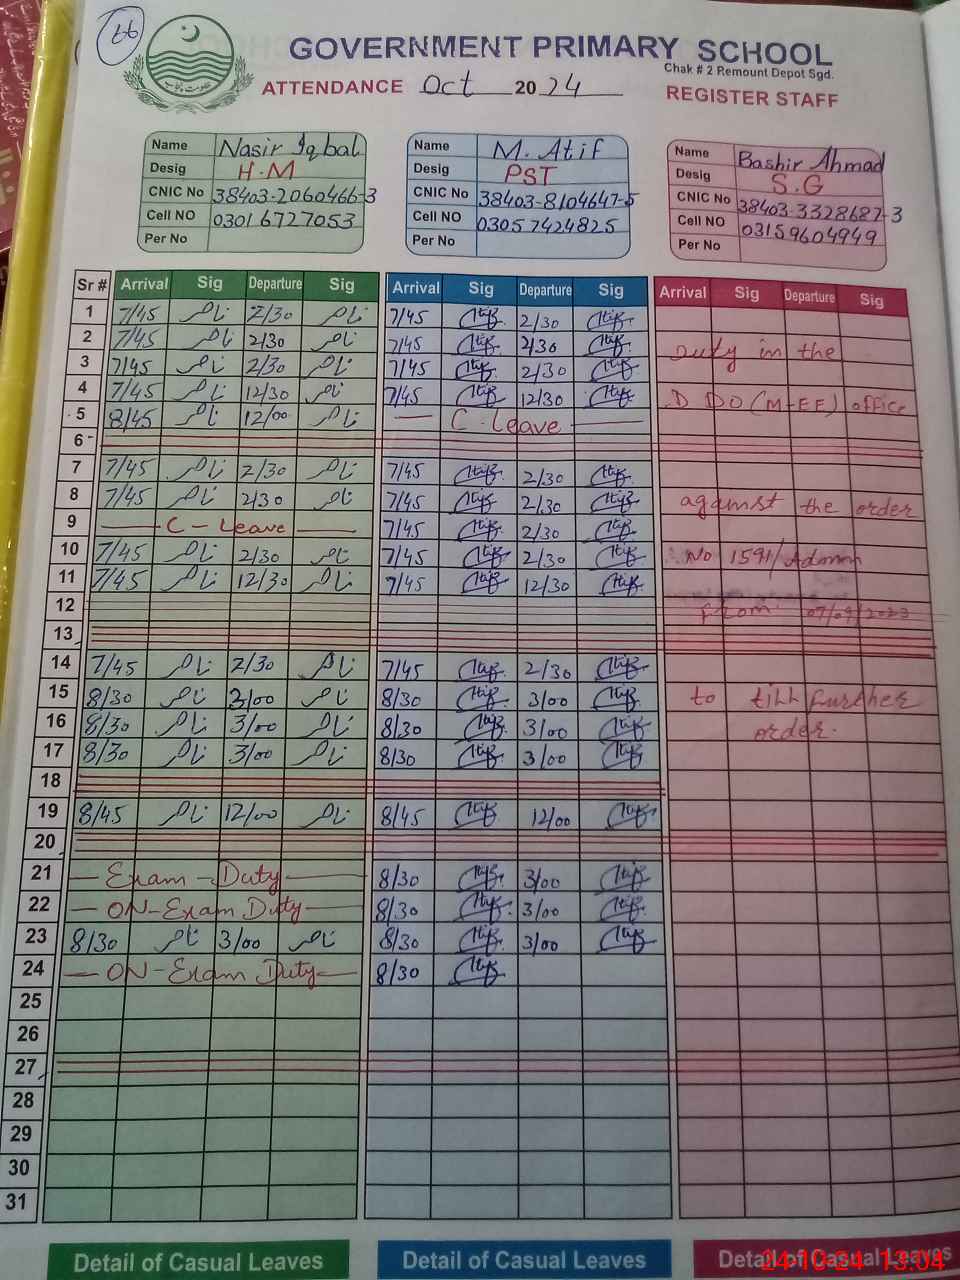 GOVERNMENT PRIMARY SCHOOL
Chak # 2 Remount Depot Sgd.
ATTENDANCE Oct 2024 REGISTER STAFF
Name Nasir Iqbal
Desig H.M
CNIC No 38403-2060466-3
Cell NO 03016727053
Per No
Name M. Atif
Desig PST
CNIC No 38403-8104647-5
Cell NO 03057424825
Per No
Name Bashir Ahmad
Desig S.G
CNIC No 38403-3328687-3
Cell NO 03159604949
Per No
Sr # Arrival Sig Departure Sig Arrival Sig Departure Sig Arrival Sig Departure Sig
1 7/45 ناصر 2/30 ناصر 7/45 Atif 2/30 Atif
2 7/45 ناصر 2/30 ناصر 7/45 Atif 2/30 Atif Duty in the
3 7/45 ناصر 2/30 ناصر 7/45 Atif 2/30 Atif
4 7/45 ناصر 12/30 ناصر 7/45 Atif 12/30 Atif D DO (M-EE) office
5 8/45 ناصر 12/00 ناصر C-Leave
6
7 7/45 ناصر 2/30 ناصر 7/45 Atif 2/30 Atif
8 7/45 ناصر 2/30 ناصر 7/45 Atif 2/30 Atif against the order
9 C-Leave 7/45 Atif 2/30 Atif
10 7/45 ناصر 2/30 ناصر 7/45 Atif 2/30 Atif No 1591/Admin
11 7/45 ناصر 12/30 ناصر 7/45 Atif 12/30 Atif
12 From 07/09/2023
13
14 7/45 ناصر 2/30 ناصر 7/45 Atif 2/30 Atif
15 8/30 ناصر 3/00 ناصر 8/30 Atif 3/00 Atif to till further
16 8/30 ناصر 3/00 ناصر 8/30 Atif 3/00 Atif order.
17 8/30 ناصر 3/00 ناصر 8/30 Atif 3/00 Atif
18
19 8/45 ناصر 12/00 ناصر 8/45 Atif 12/00 Atif
20
21 Exam-Duty 8/30 Atif 3/00 Atif
22 ON-Exam Duty 8/30 Atif 3/00 Atif
23 8/30 ناصر 3/00 ناصر 8/30 Atif 3/00 Atif
24 ON-Exam Duty 8/30 Atif
25
26
27
28
29
30
31
Detail of Casual Leaves Detail of Casual Leaves Detail of Casual Leaves
24-10-24 13:04